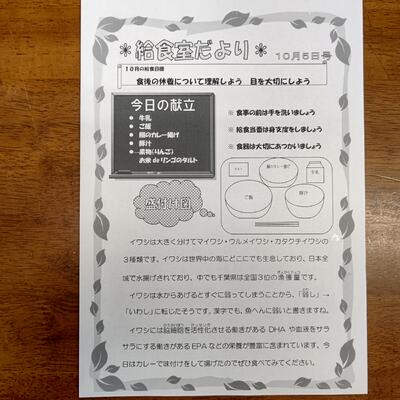 ＊給食室だより＊ 10月5日号
10月の給食目標
食後の休養について理解しよう 目を大切にしよう
今日の献立
● 牛乳
● ご飯
● 鰯のカレー揚げ
● 豚汁
● 果物(りんご)
お米deリンゴのタルト
※ 食事の前は手を洗いましょう
※ 給食当番は身支度をしましょう
※ 食器は大切にあつかいましょう
盛付け図
タルト
鰯のカレー揚げ
牛乳
ご飯
豚汁
イワシは大きく分けてマイワシ・ウルメイワシ・カタクチイワシの
３種類です。イワシは世界中の海にどこにでも生息しており、日本全
城で水揚げされており、中でも千葉県は全国３位の漁獲量です。
イワシは水からあげるとすぐに弱ってしまうことから、「弱し」→
「いわし」に転じたそうです。漢字でも、魚へんに弱いと書きますね。
イワシには脳細胞を活性化させる働きがある DHA や血液をサラ
サラにする働きがある EPA などの栄養が豊富に含まれています。今
日はカレーで味付けをして揚げたのでぜひ食べてみてください。